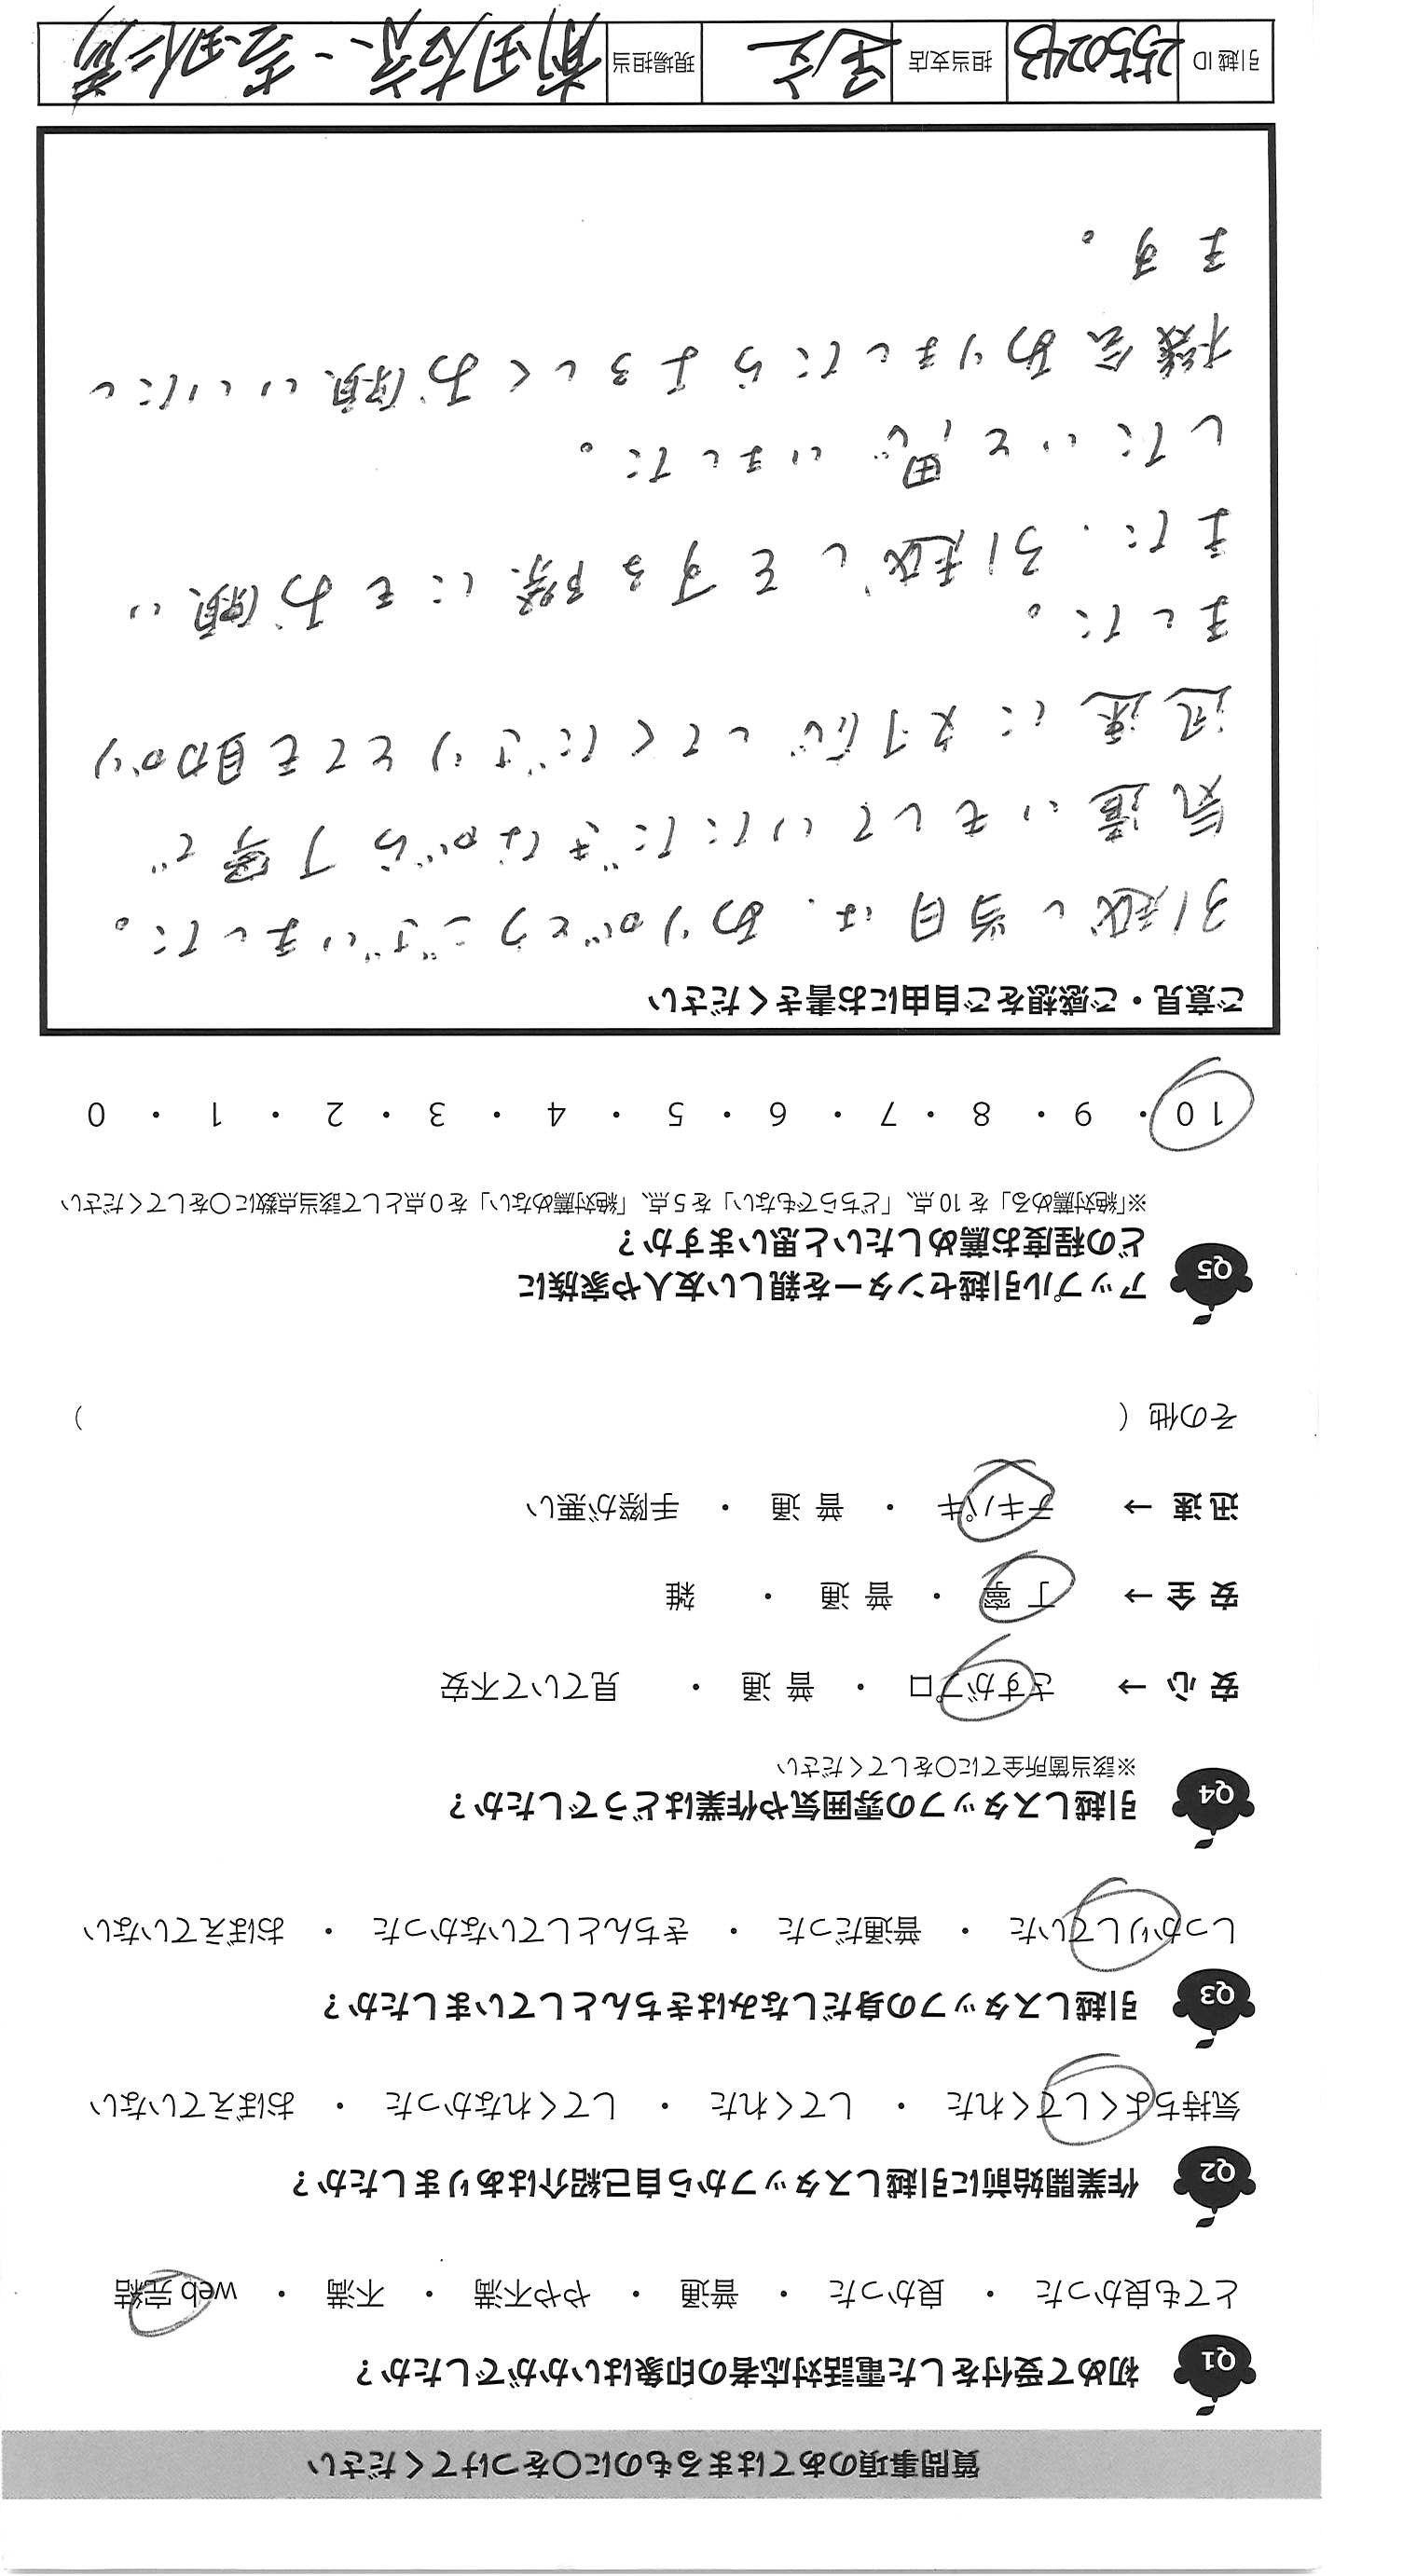 質問事項のあてはまるものに〇をつけてください
Q1 初めて受付をした電話対応者の印象はいかがでしたか？
とても良かった ・ 良かった ・ 普通 ・ やや不満 ・ 不満 ・ web 完結
Q2 作業開始前に引越しスタッフから自己紹介はありましたか？
気持ちよくしてくれた ・ してくれた ・ してくれなかった ・ おぼえていない
Q3 引越しスタッフの身だしなみはきちんとしていましたか？
しっかりしていた ・ 普通だった ・ きちんとしていなかった ・ おぼえていない
Q4 引越しスタッフの雰囲気や作業はどうでしたか？
※該当箇所全てに〇をしてください
安 心 → さすがプロ ・ 普 通 ・ 見ていて不安
安 全 → 丁 寧 ・ 普 通 ・ 雑
迅 速 → テキパキ ・ 普 通 ・ 手際が悪い
その他（ ）
Q5 アップル引越センターを親しい友人や家族に
どの程度お薦めしたいと思いますか？
※「絶対薦める」を 10 点、「どちらでもない」を 5 点、「絶対薦めない」を 0 点として該当点数に〇をしてください
10 ・ 9 ・ 8 ・ 7 ・ 6 ・ 5 ・ 4 ・ 3 ・ 2 ・ 1 ・ 0
ご意見・ご感想をご自由にお書きください
引越し当日は、ありがとうございました。
気遣いをしていただきながら丁寧で
迅速に対応してくださりとても助かり
ました。
また、引越しをする際にもお願い
したいと思いました。
機会ありましたらよろしくお願いいたし
ます。
引越 ID 2550243 担当支店 現場担当